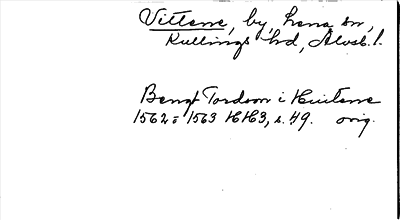 Vittene, by, Lena sn,
Kullings hd, Älvsb. l.
Bengt Tordson i Huitene
1562 = 1563 HH3, s. 49. orig.